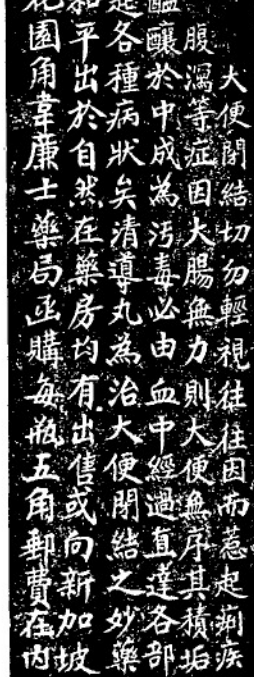 大便閉結切勿輕視往往因而惹起痢疾
腹瀉等症因大腸無力則大便無序其積垢
醞釀於中成為污毒必由血中經過直達各部
是各種病狀矣清導丸為治大便閉結之妙藥
和平出於自然在藥房均有出售或向新加坡
花園角韋廉士藥局函購每瓶五角郵費在內